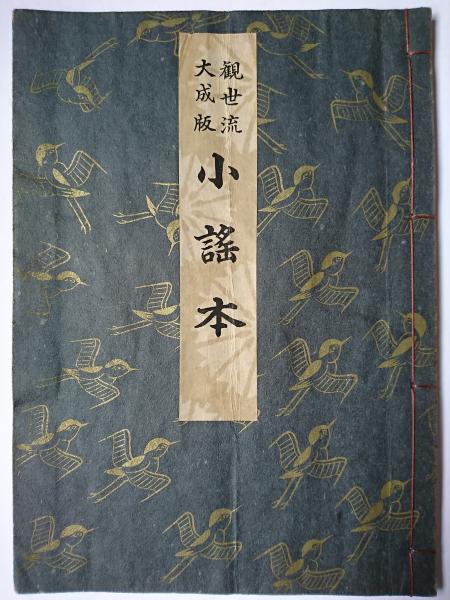 観世流
大成版
小謡本